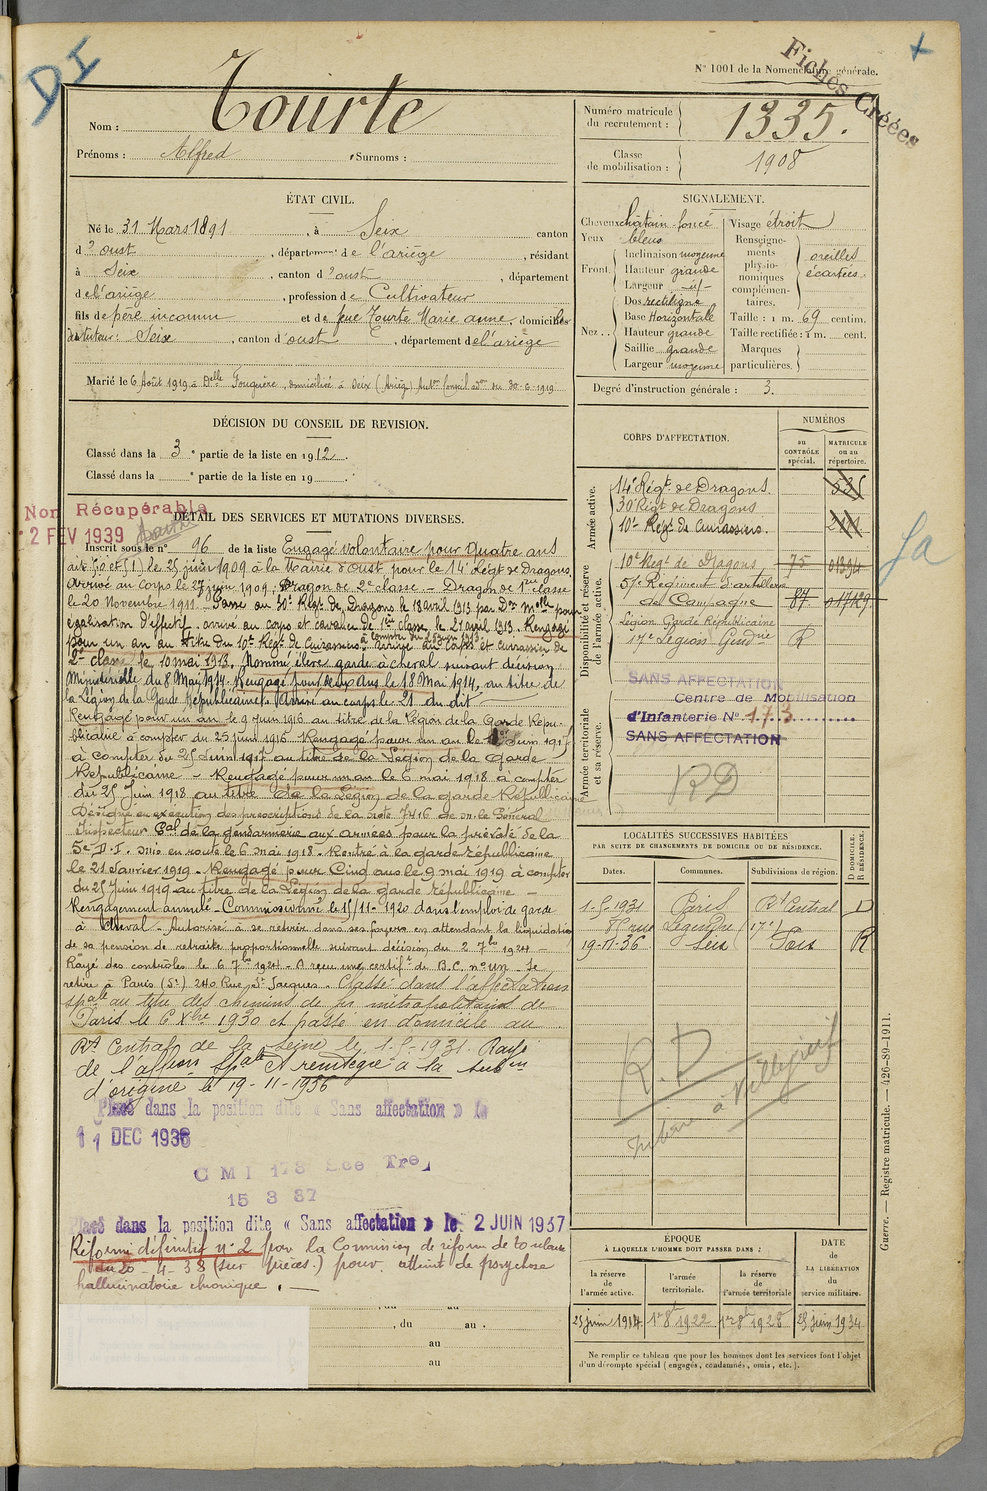 DI
Fiches Créées
N° 1001 de la Nomenclature générale.
Nom : Tourte
Prénoms : Alfred Surnoms :
Numéro matricule du recrutement : 1335.
Classe de mobilisation : 1908
ÉTAT CIVIL.
Né le 31 Mars 1891, à Seix canton
d'oust, département de l'ariège, résidant
à Seix, canton d'oust, département
de l'ariège, profession de Cultivateur
fils de père inconnu et de feue Tourte Marie anne, domiciliés
Seix, canton d'oust, département de l'ariège
Marié le 6 Août 1919 à Delle Fouguère, domiciliée à Seix (Ariège) Auton Conseil adon du 30-6-1919
SIGNALEMENT.
Cheveux châtain foncé
Yeux bleus
Front. Inclinaison moyenne
Hauteur grande
Largeur id
Nez. Dos rectiligne
Base Horizontale
Hauteur grande
Saillie grande
Largeur moyenne
Visage étroit
Renseignements physionomiques complémentaires. oreilles écartées.
Taille : 1 m. 69 centim.
Taille rectifiée : 1 m. cent.
Marques particulières.
Degré d'instruction générale : 3.
DÉCISION DU CONSEIL DE REVISION.
Classé dans la 3e partie de la liste en 1912.
Classé dans la e partie de la liste en 19 .
CORPS D'AFFECTATION.
NUMÉROS
au CONTRÔLE spécial.
MATRICULE ou au répertoire.
Armée active.
14e Régt de Dragons. 535
30e Régt de Dragons
10e Régt de Cuirassiers.
Disponibilité et réserve de l'armée active.
10e Régt de Dragons 75 01394
51e Régiment d'artillerie
de Campagne 87
Légion Garde Républicaine
17e Légion Gendrie R
Armée territoriale et sa réserve.
SANS AFFECTATION
Centre de Mobilisation
d'Infanterie N° 173
SANS AFFECTATION
RD
Non Récupérable
2 FEV 1939
DÉTAIL DES SERVICES ET MUTATIONS DIVERSES.
Inscrit sous le n° 96 de la liste Engagé volontaire pour quatre ans
le 25 juin 1909 à la Mairie d'oust pour le 14e Régt de Dragons.
Arrivé au Corps le 27 juin 1909, Dragon de 2e classe – Dragon de 1re classe
le 20 Novembre 1911. Passé au 30e Régt de Dragons le 18 avril 1913 par Don Mlle pour
égalisation d'effectif. arrivé au corps et cavalier de 1ere classe, le 21 avril 1913. Rengagé
pour un an au titre du 10e Régt de Cuirassiers à compter du 25 juin 1913. arrivé au Corps et cuirassier de
2e classe le 10 mai 1913. Nommé élève garde à cheval suivant décision
Ministérielle du 8 Mai 1914. Rengagé pour deux ans le 18 Mai 1914, au titre de
la Légion de la Garde Républicaine. Arrivé au corps le 21 du dit
Rengagé pour un an le 9 juin 1916 au titre de la Légion de la Garde Répu-
blicaine à compter du 25 juin 1916 Rengagé pour un an le Juin 1917
à compter du 25 Juin 1917 au titre de la Légion de la Garde
Républicaine – Rengagé pour un an le 6 mai 1918 à compter
du 25 Juin 1918 au titre de la Légion de la garde Républicaine
Désigné en exécution des prescriptions de la Note 7416 de m. le Général
Inspecteur Gal de la gendarmerie aux armées pour la prévôté de la
5e D.I. mis en route le 6 mai 1918. Rentré à la garde républicaine
le 21 Janvier 1919 – Rengagé pour Cinq ans le 9 mai 1919 à compter
du 25 Juin 1919 au titre de la Légion de la garde républicaine –
Rengagement annulé – Commissionné le 15/11-1920 dans l'emploi de garde
à Cheval – Autorisé à se retirer dans ses foyers en attendant la liquidation
de sa pension de retraite proportionnelle suivant décision du 2 7bre 1924 –
Rayé des contrôles le 6 7bre 1924 – A reçu un certift de B.C. n° un – Se
retire à Paris (5e) 240 Rue St Jacques. Classé dans l'affectation
spale au titre des chemins de fer métropolitains de
Paris le 6 Xbre 1930 et passé en domicile au
Rt Central de la Seine le 1-5-1931. Rayé
de l'affion spale et réintégré à la subon
d'origine le 19-11-1936
Placé dans la position dite « Sans affectation » le
11 DEC 1936
C M I 173
15 3 37
Placé dans la position dite « Sans affectation » le 2 JUIN 1937
Réformé définitif n° 2 par la Commission de réforme de Toulouse
du 20-4-38 (sur pièces) pour atteint de psychose
hallucinatoire chronique.
, du au .
au
au
LOCALITÉS SUCCESSIVES HABITÉES
PAR SUITE DE CHANGEMENTS DE DOMICILE OU DE RÉSIDENCE.
Dates. Communes. Subdivisions de région. D DOMICILE. R RÉSIDENCE.
1-5-1931 Paris Rt Central D
8 rue Legendre (17e)
19-11-36 Seix Foix R
R.D
à Villejuif
ÉPOQUE
À LAQUELLE L'HOMME DOIT PASSER DANS :
la réserve de l'armée active.
l'armée territoriale.
la réserve de l'armée territoriale
DATE de LA LIBÉRATION du service militaire.
25 juin 1914 1er 8bre 1922 1er 8bre 1928 25 juin 1934
Ne remplir ce tableau que pour les hommes dont les services font l'objet
d'un décompte spécial (engagés, condamnés, omis, etc.).
Guerre. — Registre matricule. — 426-89-1911.